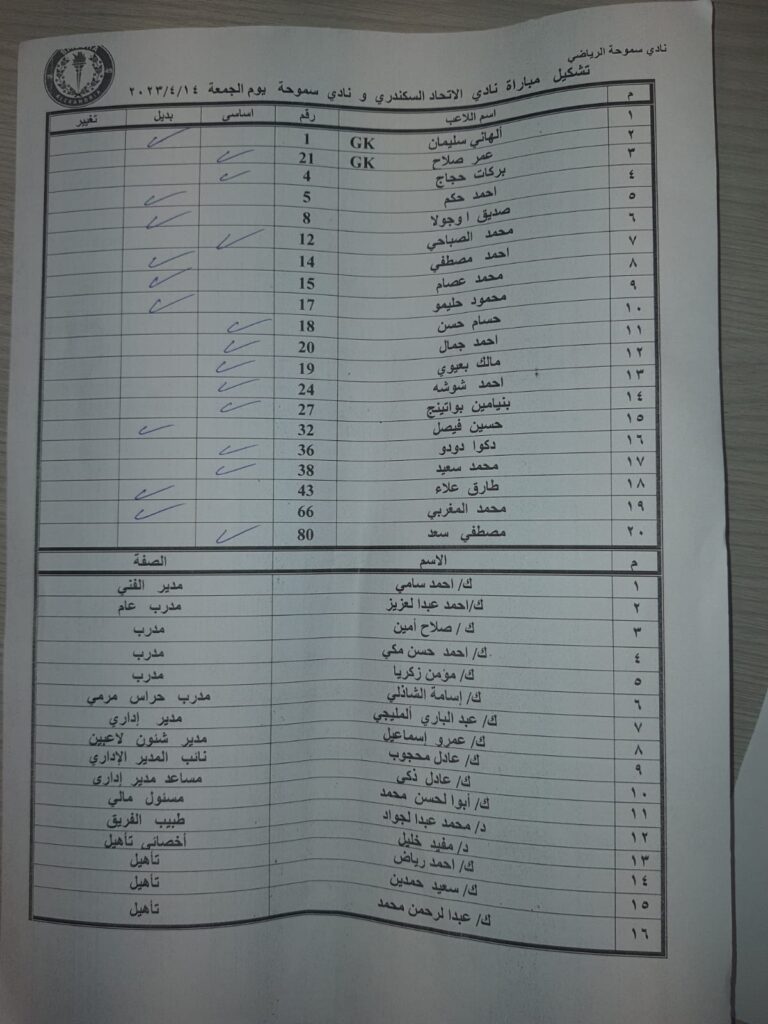 نادي سموحة الرياضي
تشكيل مباراة نادي الاتحاد السكندري و نادي سموحة يوم الجمعة ٢٠٢٣/٤/١٤
م اسم اللاعب رقم اساسى بديل تغيير
١ ألهاني سليمان GK 1 ✓
٢ عمر صلاح GK 21 ✓
٣ بركات حجاج 4 ✓
٤ احمد حكم 5 ✓
٥ صديق اوجولا 8 ✓
٦ محمد الصباحي 12 ✓
٧ احمد مصطفي 14 ✓
٨ محمد عصام 15 ✓
٩ محمود حليمو 17 ✓
١٠ حسام حسن 18 ✓
١١ احمد جمال 20 ✓
١٢ مالك بعيوي 19 ✓
١٣ احمد شوشه 24 ✓
١٤ بنيامين بواتينج 27 ✓
١٥ حسين فيصل 32 ✓
١٦ دكوا دودو 36 ✓
١٧ محمد سعيد 38 ✓
١٨ طارق علاء 43 ✓
١٩ محمد المغربي 66 ✓
٢٠ مصطفي سعد 80 ✓
م الاسم الصفة
١ ك/ احمد سامي مدير الفني
٢ ك/احمد عبدا لعزيز مدرب عام
٣ ك/ صلاح أمين مدرب
٤ ك/ احمد حسن مكي مدرب
٥ ك/ مؤمن زكريا مدرب
٦ ك/ إسامة الشاذلي مدرب حراس مرمي
٧ ك/ عبد الباري ألمليجي مدير إداري
٨ ك/ عمرو إسماعيل مدير شئون لاعبين
٩ ك/ عادل محجوب نائب المدير الإداري
١٠ ك/ عادل ذكى مساعد مدير إدارى
١١ ك/ أبوا لحسن محمد مسئول مالي
١٢ د/ محمد عبدا لجواد طبيب الفريق
١٣ د/ مفيد خليل أخصائى تأهيل
١٤ ك/ احمد رياض تأهيل
١٥ ك/ سعيد حمدين تأهيل
١٦ ك/ عبدا لرحمن محمد تأهيل